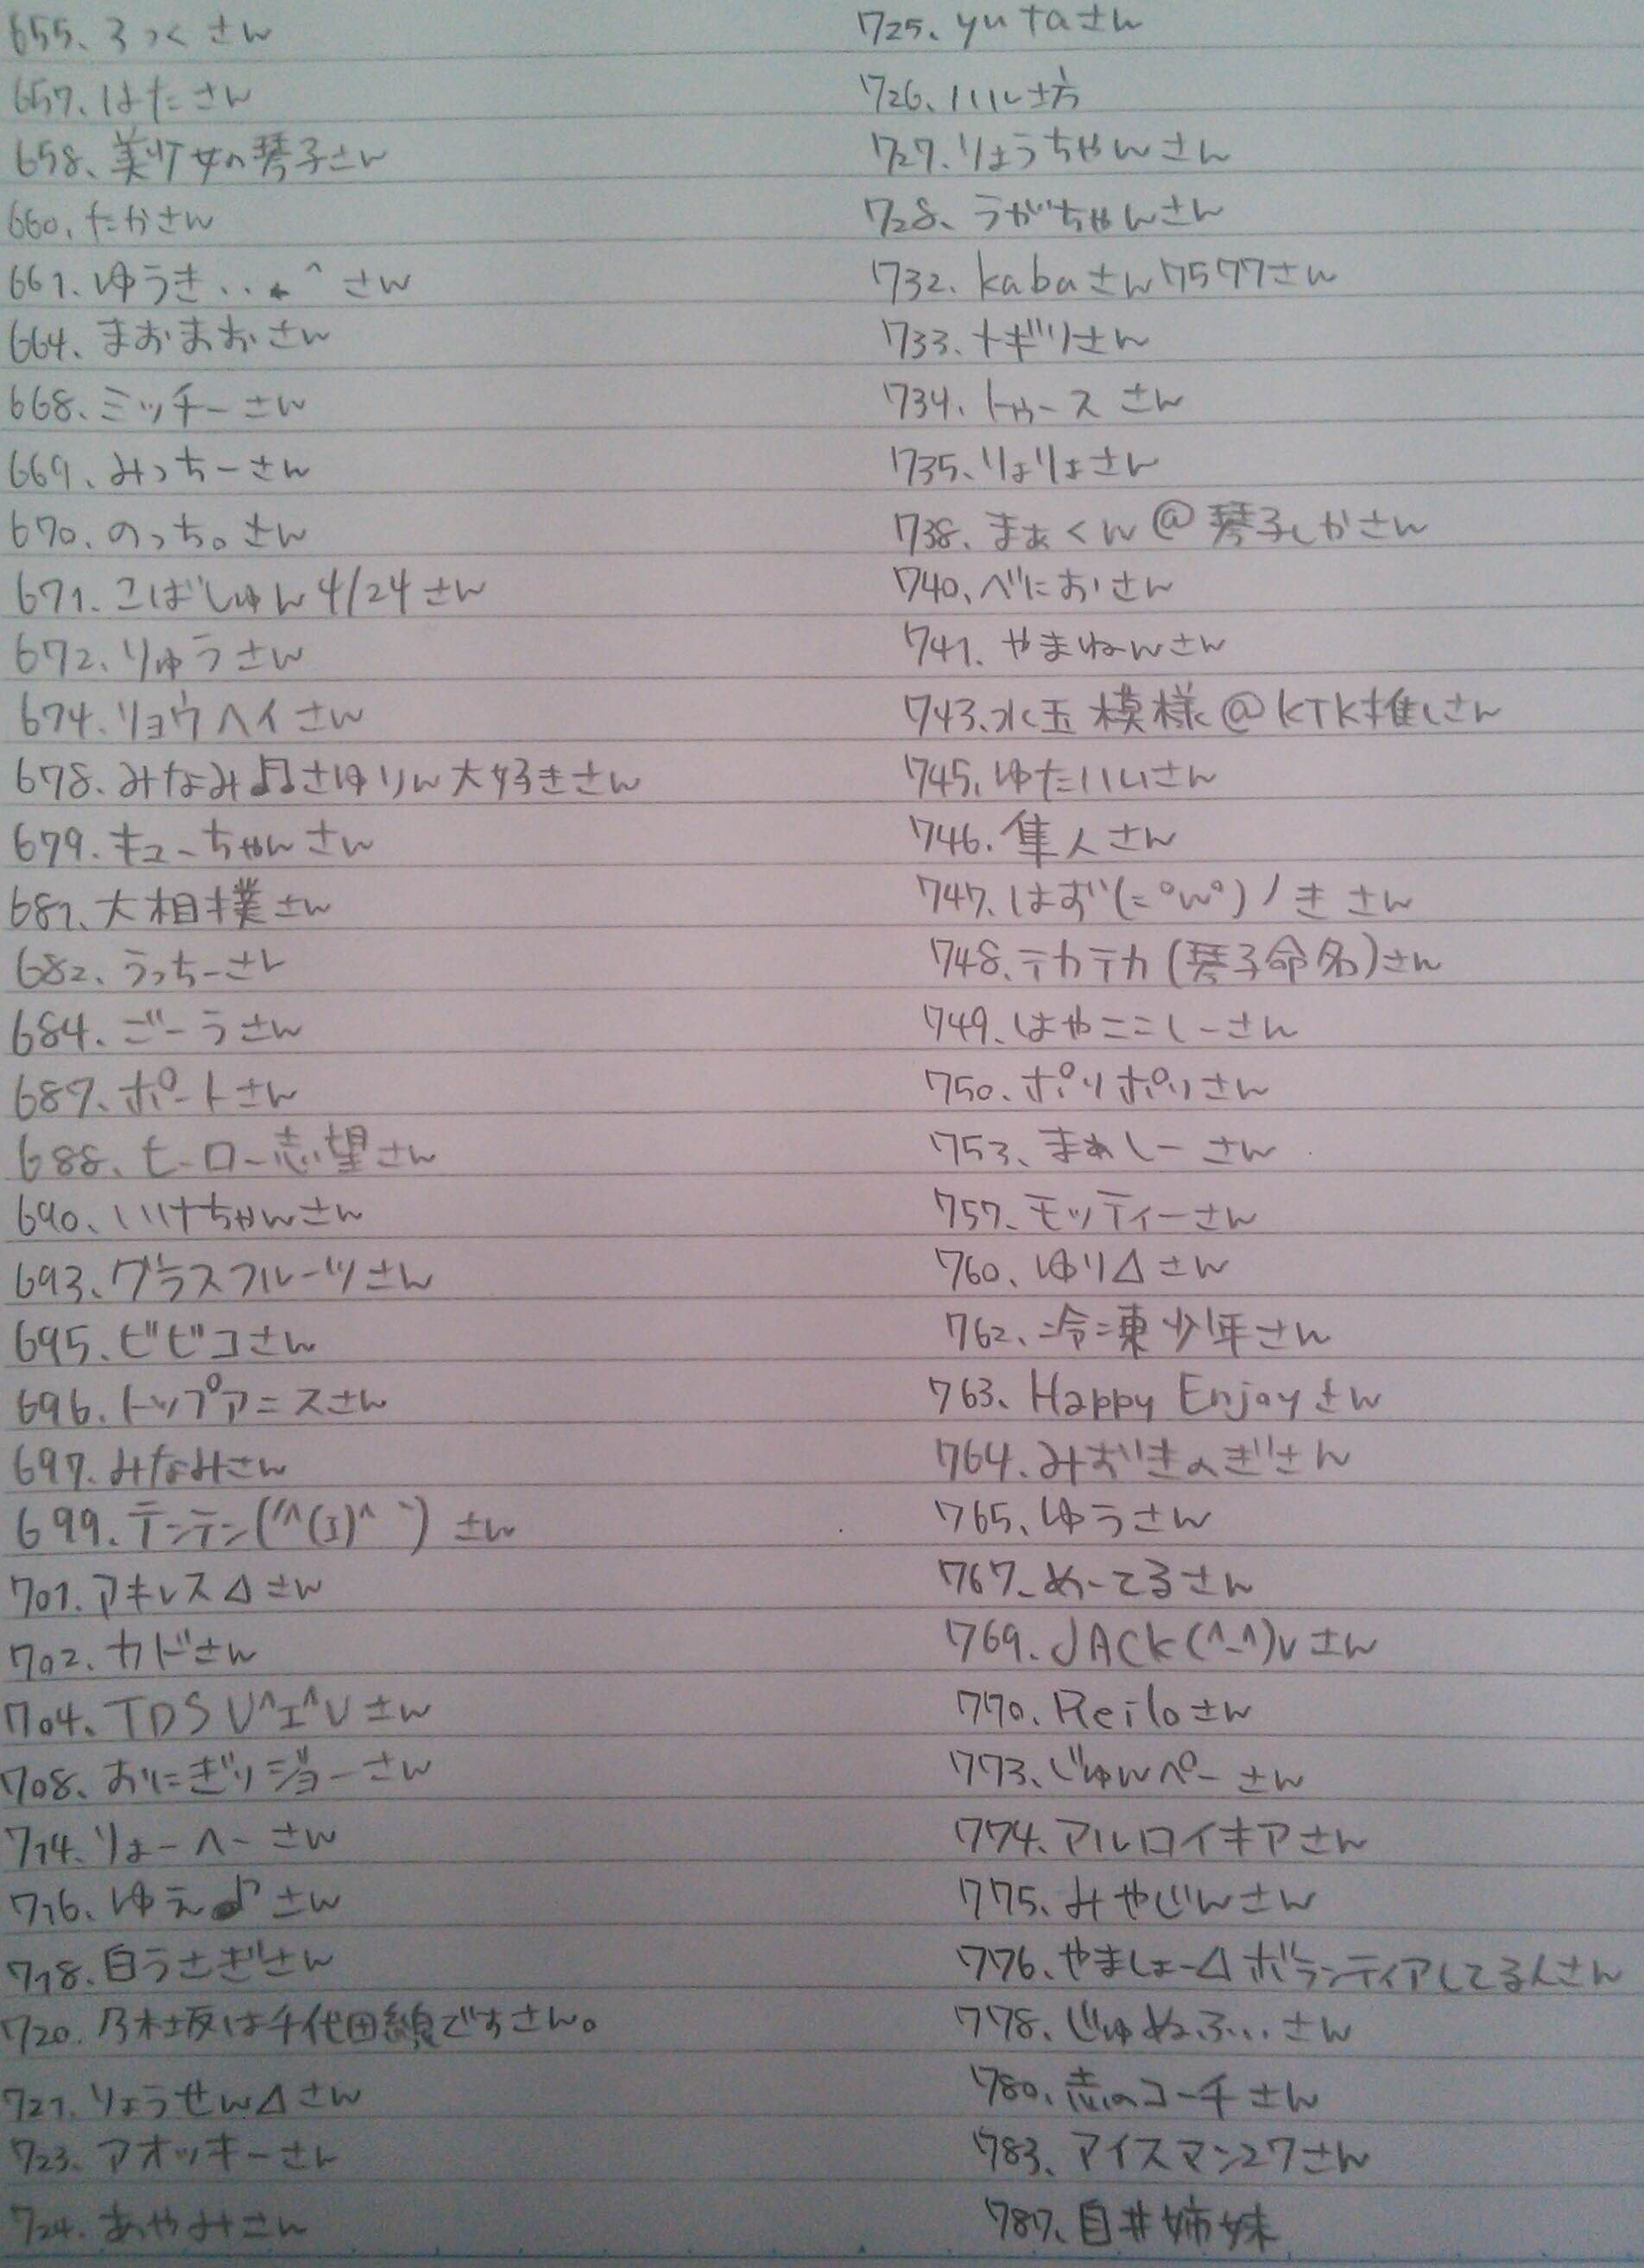 655、ろっくさん
657、はたさん
658、美少女の琴子さん
660、たかさん
661、ゆうき さん
664、まおまおさん
668、ミッチーさん
669、みっちーさん
670、のっち。さん
671、こばしゅん4/24さん
672、りゅうさん
674、リョウヘイさん
678、みなみ♫さゆりん大好きさん
679、キューちゃんさん
681、大相撲さん
682、うっちーさん
684、ごーうさん
687、ポートさん
688、ヒーロー志望さん
690、いけちゃんさん
693、グラスフルーツさん
695、ビビコさん
696、トップアニスさん
697、みなみさん
699、テンテン さん
701、アキレス△さん
702、カドさん
704、TDS U^エ^Uさん
708、おにぎりジョーさん
714、りょーへーさん
716、ゆえ♪さん
718、白うさぎさん
720、乃木坂は千代田線ですさん。
721、りょうせん△さん
723、アオッキーさん
724、あやみさん
725、yutaさん
726、ハル坊
727、りょうちゃんさん
728、うがちゃんさん
732、kabaさん7577さん
733、ナギリさん
734、トゥース さん
735、りょりょさん
738、まぁくん@琴子しかさん
740、べにおさん
741、やまねんさん
743、水玉模様@KTK推しさん
745、ゆたいいさん
746、隼人さん
747、はず(=°w°)ノき さん
748、テカテカ(琴子命名)さん
749、はやここしーさん
750、ポリポリさん
753、まぁしーさん
757、モッティーさん
760、ゆり△さん
762、冷凍少年さん
763、Happy Enjoyさん
764、みずきのぎさん
765、ゆうさん
767、めーてるさん
769、JACK(^-^)vさん
770、Reiloさん
773、じゅんぺーさん
774、アルロイキアさん
775、みやじんさん
776、やましょー△ボランティアしてる人さん
778、じゅぬふ...さん
780、志のコーチさん
783、アイスマン27さん
787、白井姉妹